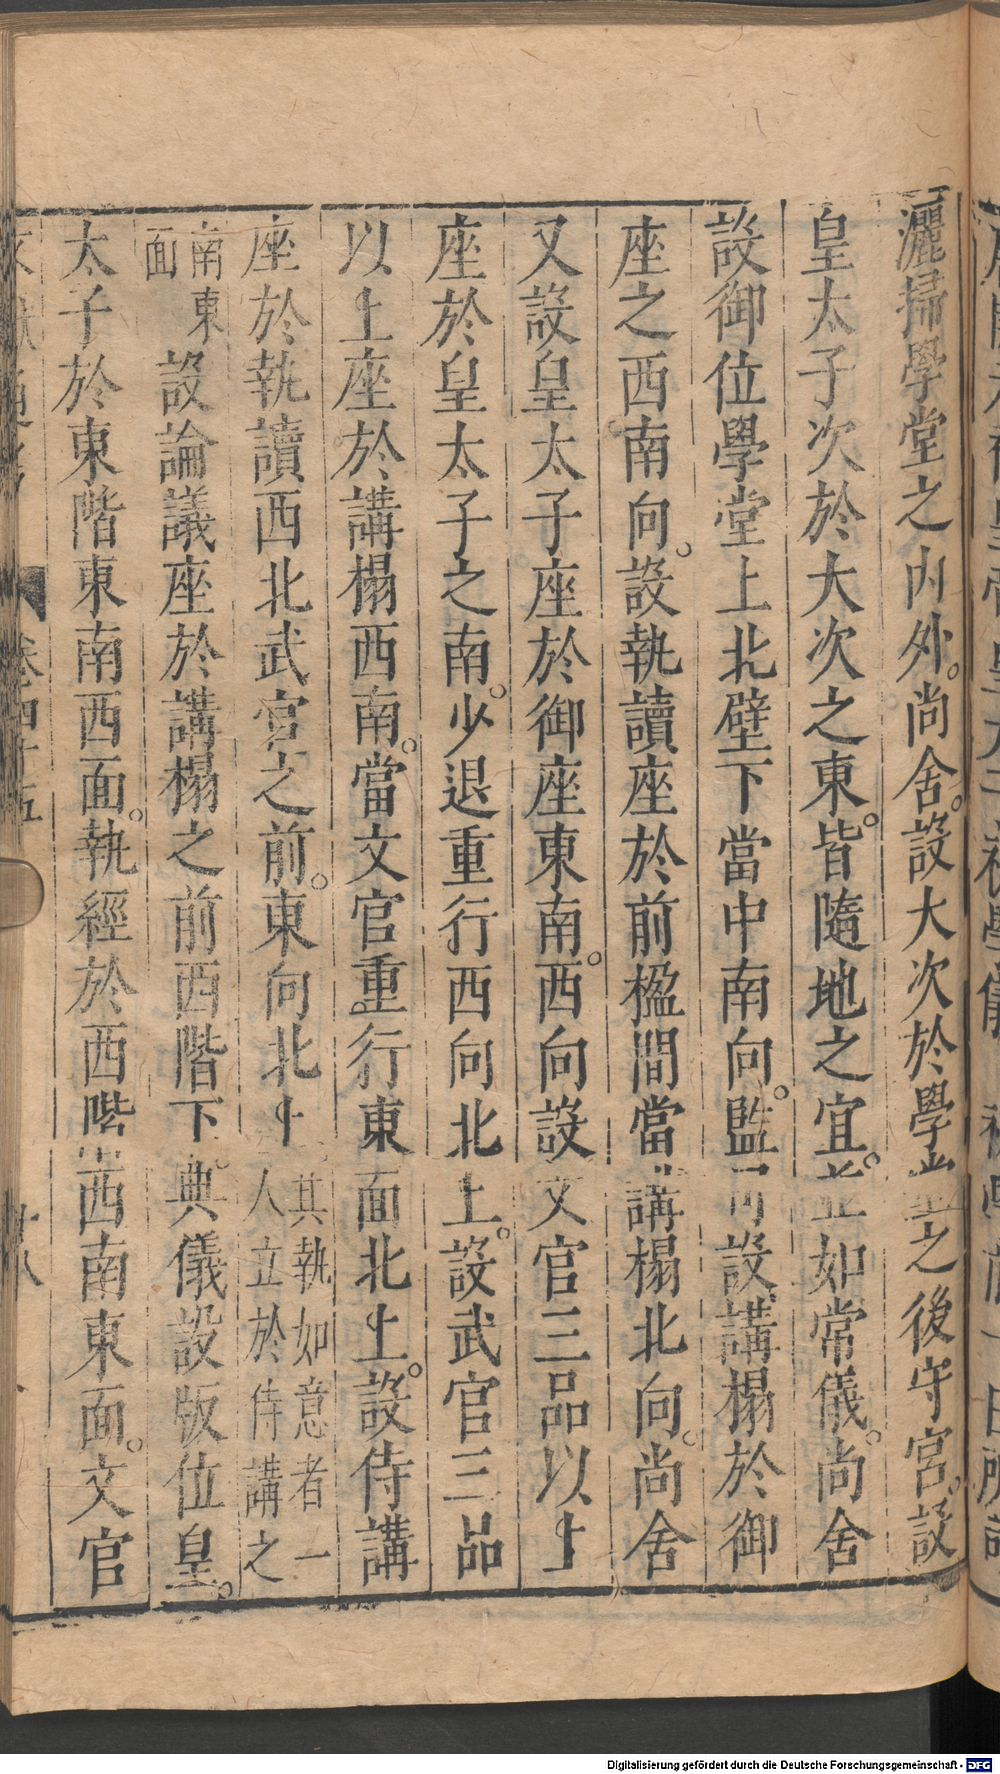 灑掃學堂之內外。尚舍。設大次於學堂之後守宮。設
皇太子次於大次之東。皆隨地之宜。並如常儀。尚舍
設御位學堂上北壁下當中南向。監司設講榻於御
座之西南向。設執讀座於前楹間當講榻北向。尚舍
又設皇太子座於御座東南。西向設文官三品以上
座於皇太子之南。少退重行西向北上。設武官三品
以上座於講榻西南。當文官重行東面北上。設侍講
座於執讀西北武官之前。東向北上其執如意者一人立於侍講之
南東面設論議座於講榻之前西階下。典儀設版位皇。
太子於東階東南西面。執經於西階西南東面。文官
卷四十五
Digitalisierung gefördert durch die Deutsche Forschungsgemeinschaft - DFG